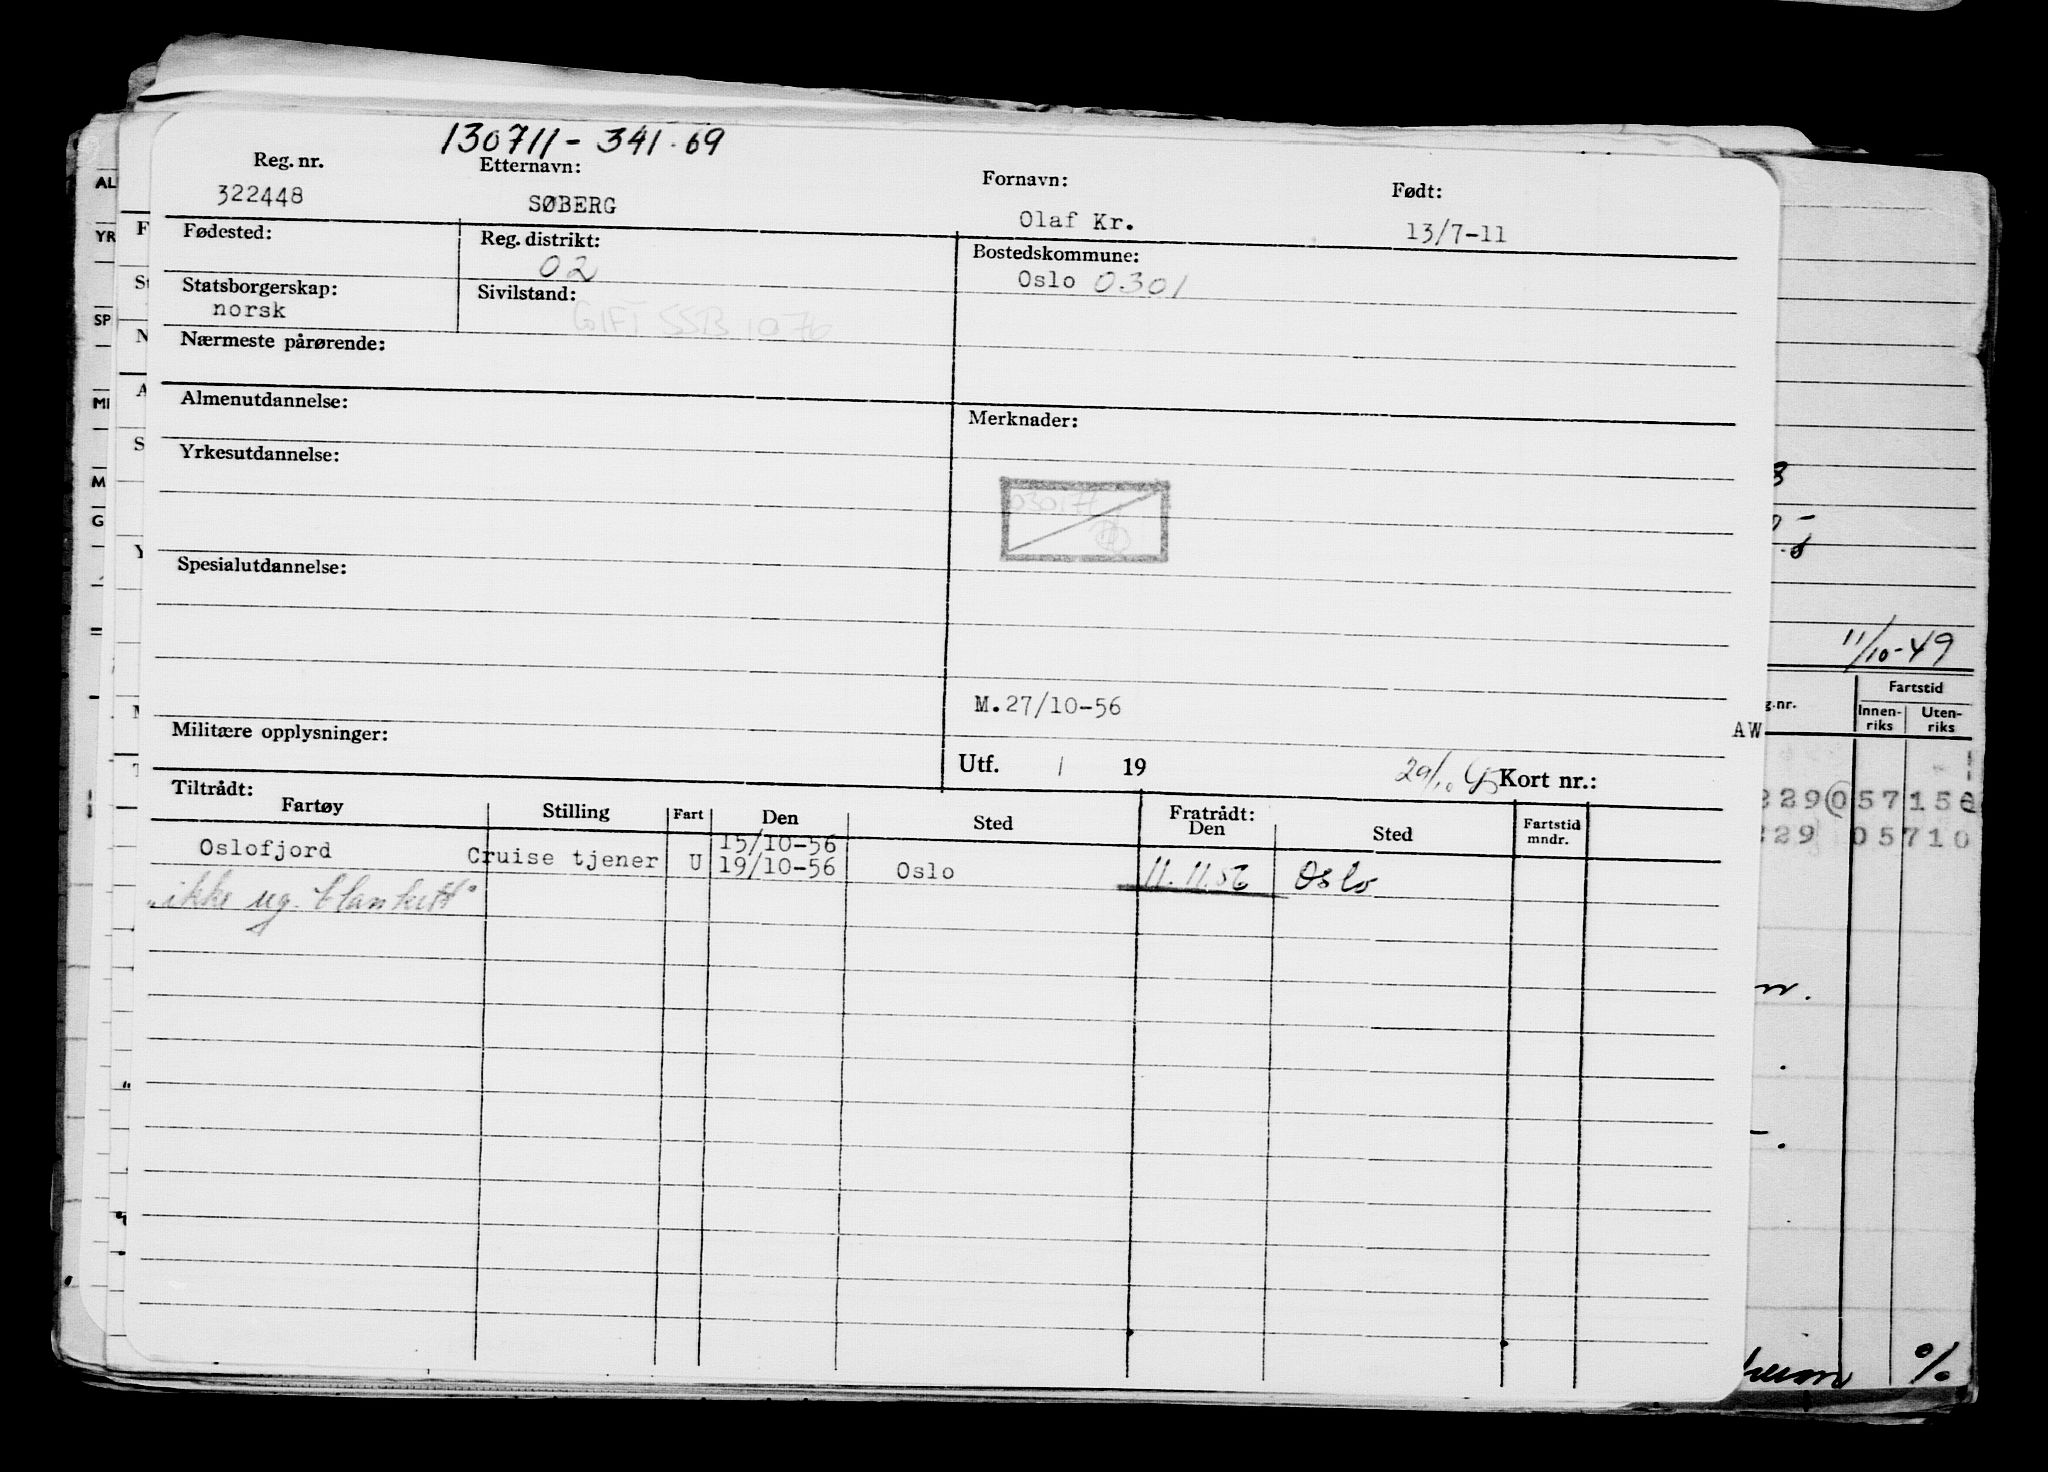 130711 - 341.69
Reg. nr. Etternavn: Fornavn: Født:
322448 SØBERG Olaf Kr. 13/7-11
Fødested: Reg. distrikt: Bostedskommune:
02 Oslo 0301
Statsborgerskap: Sivilstand:
norsk GIFT SSB 1076
Nærmeste pårørende:
Almenutdannelse: Merknader:
Yrkesutdannelse:
Spesialutdannelse:
M.27/10-56
AW
Militære opplysninger:
Utf. / 19 Kort nr.:
Tiltrådt: Fratrådt:
Fartøy Stilling Fart Den Sted Den Sted Fartstid mndr.
15/10-56
Oslofjord Cruise tjener U 19/10-56 Oslo 11.11.56 Oslo
"ikke ug. blankett"
11/10-49
Fartstid
g.nr. Innen-riks Uten-riks
229 05715
229 05710